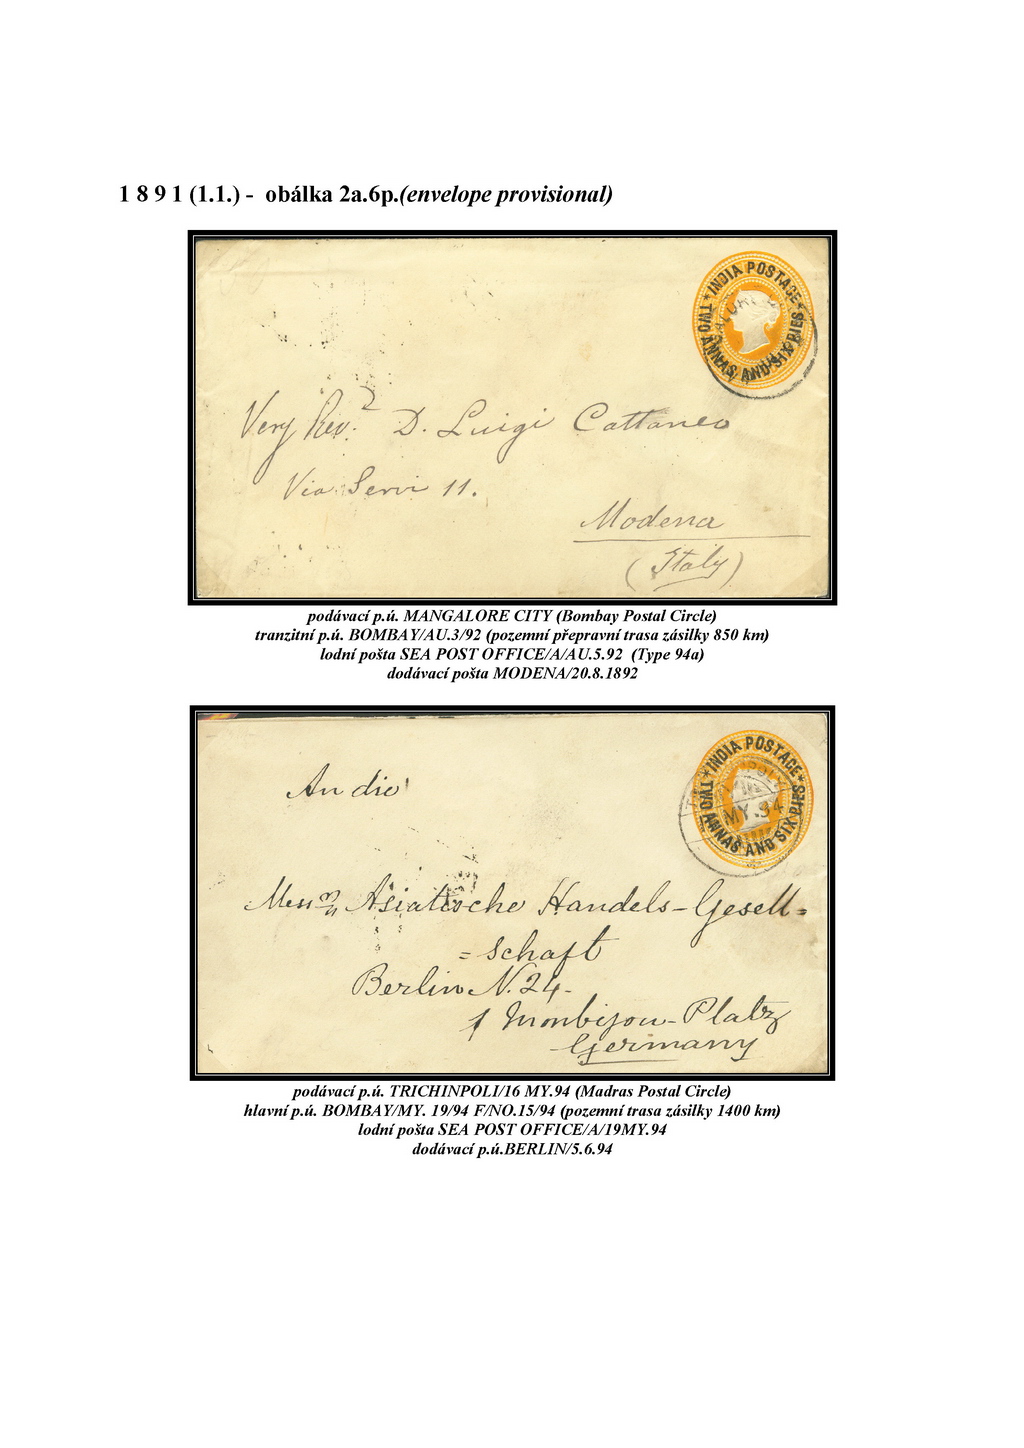 1 8 9 1 (1.1.) - obálka 2a.6p.(envelope provisional)
* INDIA POSTAGE *
TWO ANNAS AND SIX PIES
Very Rev. D. Luigi Cattaneo
Via Servi 11.
Modena
(Italy)
podávací p.ú. MANGALORE CITY (Bombay Postal Circle)
tranzitní p.ú. BOMBAY/AU.3/92 (pozemní přepravní trasa zásilky 850 km)
lodní pošta SEA POST OFFICE/A/AU.5.92 (Type 94a)
dodávací pošta MODENA/20.8.1892
* INDIA POSTAGE *
TWO ANNAS AND SIX PIES
MY.94
An die
Messrs Asiatische Handels-Gesell=
=schaft
Berlin N. 24-
1 Monbijou-Platz
Germany
podávací p.ú. TRICHINPOLI/16 MY.94 (Madras Postal Circle)
hlavní p.ú. BOMBAY/MY. 19/94 F/NO.15/94 (pozemní trasa zásilky 1400 km)
lodní pošta SEA POST OFFICE/A/19MY.94
dodávací p.ú.BERLIN/5.6.94